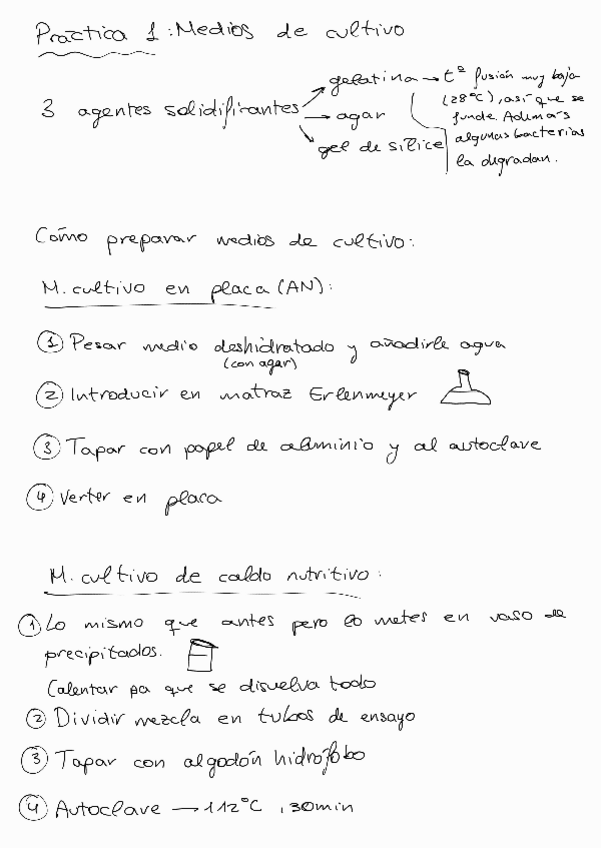 Practica 1: Medios de cultivo
3 agentes solidifirantes
gelatina → tª fusión muy baja
(28ºC), así que se
funde. Además
algunas bacterias
la degradan.
→ agar
gel de sílice
Cómo preparar medios de cultivo:
M. cultivo en placa (AN):
① Pesar medio deshidratado y añadirle agua
(con agar)
② Introducir en matraz Erlenmeyer
③ Tapar con papel de aluminio y al autoclave
④ Verter en placa
M. cultivo de caldo nutritivo:
① Lo mismo que antes pero lo metes en vaso de
precipitados.
Calentar pa que se disuelva todo
② Dividir mezcla en tubos de ensayo
③ Tapar con algodón hidrófobo
④ Autoclave → 112ºC, 30min